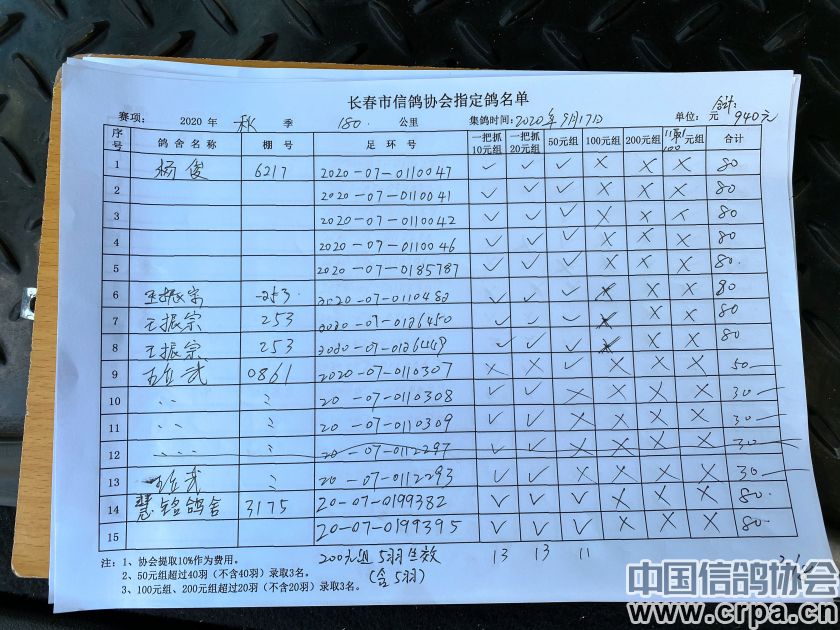 长春市信鸽协会指定鸽名单
合计:
赛项: 2020 年 秋 季 180 公里 集鸽时间:2020年9月17日 单位: 元 940元
序号 鸽舍名称 棚号 足环号 一把抓10元组 一把抓20元组 50元组 100元组 200元组 元组 合计
1 杨俊 6217 2020-07-0110047 ✓ ✓ ✓ × × × 80
2 2020-07-0110041 ✓ ✓ ✓ × × × 80
3 2020-07-0110042 ✓ ✓ ✓ × × × 80
4 2020-07-0110046 ✓ ✓ ✓ × × × 80
5 2020-07-0185787 ✓ ✓ ✓ × × × 80.
6 王振宗 253 2020-07-0110482 ✓ ✓ ✓ × × × 80
7 王振宗 253 2020-07-0126450 ✓ ✓ ✓ × × × 80
8 王振宗 253 2020-07-0126449 ✓ ✓ ✓ × × × 80
9 0861 2020-07-0110307 × × ✓ × × × 50
10 20-07-0110308 ✓ ✓ × × × × 30
11 20-07-0110309 ✓ ✓ × × × × 30
12 20-07-0112297 ✓ ✓ × × × × 30
13 20-07-0112293 ✓ ✓ × × × × 30
14 慧铭鸽舍 3175 20-07-0199382 ✓ ✓ ✓ × × × 80.
15 20-07-0199395 ✓ ✓ ✓ × × × 80.
注: 1、协会提取10%作为费用。 200元组 5羽生效 13 13 11
2、50元组超过40羽(不含40羽)录取3名。 (含5羽)
3、100元组、200元组超过20羽(不含20羽)录取3名。
中国信鸽协会
www.crpa.cn